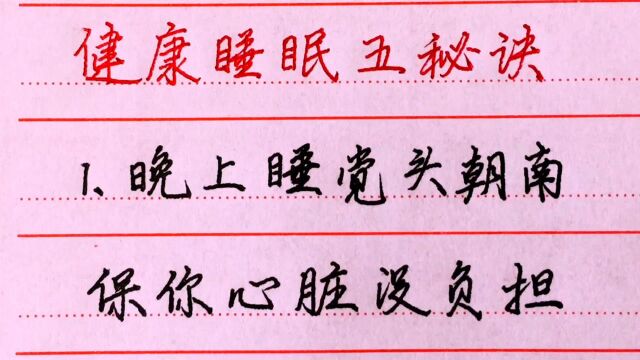 健康睡眠五秘诀
1、晚上睡觉头朝南
保你心脏没负担